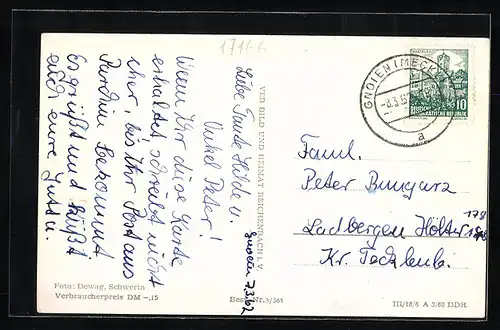 17166
Liebe Tante Hilde u.
Onkel Peter!
Gnoien 7.3.62
Wenn Ihr diese Karte
erhaltet schreibt nicht
eher, bis Ihr Post aus
bekommt
Es grüßt und küßt
euch eure Jutta.
VEB BILD UND HEIMAT REICHENBACH I. V.
Foto: Dewag, Schwerin
Verbraucherpreis DM –,15
Best.-Nr. 3/361
GNOIEN (MECKL)
a
WARTBURG
10
DEUTSCHE
DEMOKRATISCHE REPUBLIK
Famil.
Peter Bungarz
Ladbergen Hölter
178
Kr. Tecklenb.
III/18/6 A 3/60 DDR